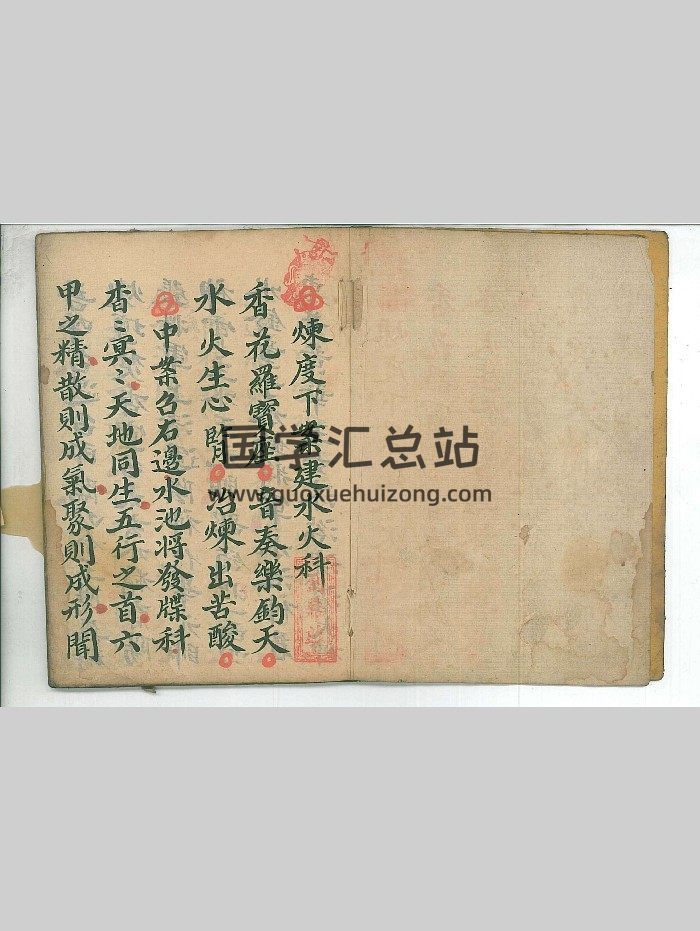 煉度下案建水火科
香花羅寶座音奏樂鈞天
水火生心臨冶煉出苦酸
中案召右邊水池將發牒科
杳〻冥〻天地同生五行之首六
甲之精散則成氣聚則成形聞
国学汇总站
www.guoxuehuizong.com